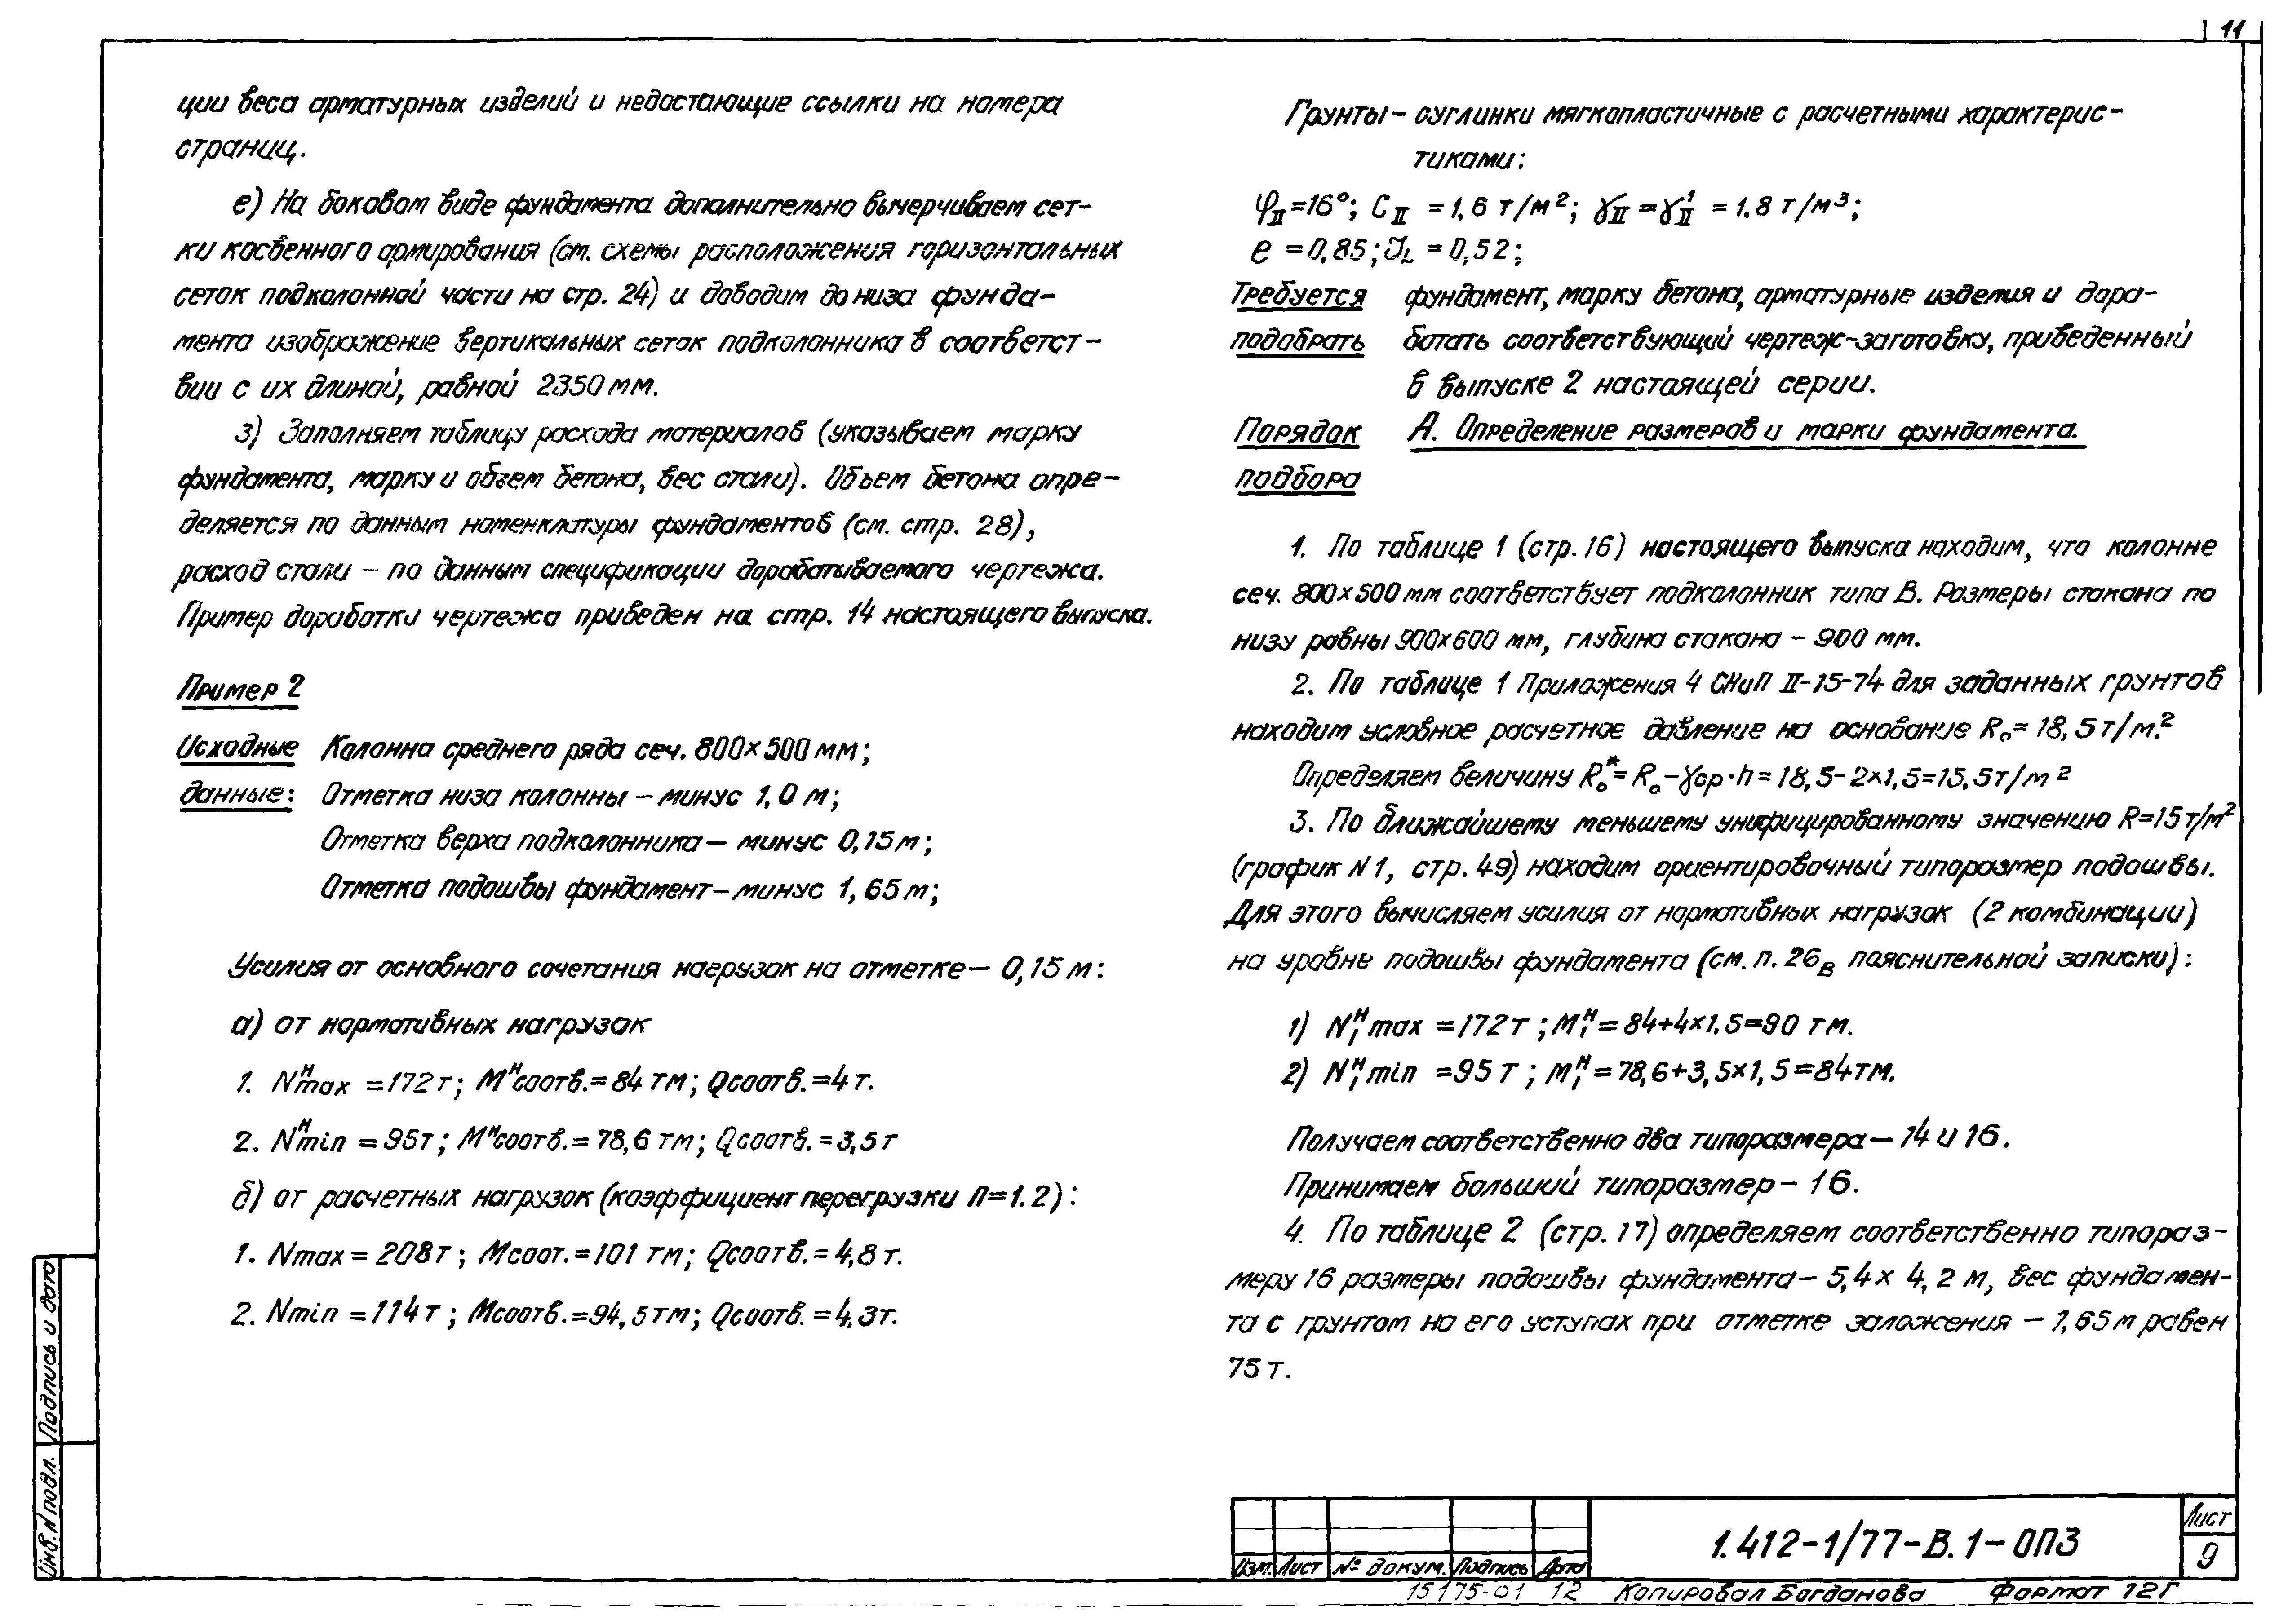 11
ции веса арматурных изделий и недостающие ссылки на номера
страниц.
е) На боковом виде фундамента дополнительно вычерчиваем сет-
ки косвенного армирования (см. схемы расположения горизонтальных
сеток подколонной части на стр. 24) и доводим до низа фунда-
мента изображение вертикальных сеток подколонника в соответст-
вии с их длиной, равной 2350 мм.
з) Заполняем таблицу расхода материалов (указываем марку
фундамента, марку и объем бетона, вес стали). Объем бетона опре-
деляется по данным номенклатуры фундаментов (см. стр. 28),
расход стали – по данным спецификации дорабатываемого чертежа.
Пример доработки чертежа приведен на стр. 14 настоящего выпуска.
Пример 2
Исходные Колонна среднего ряда сеч. 800×500 мм;
данные: Отметка низа колонны – минус 1,0 м;
Отметка верха подколонника – минус 0,15 м;
Отметка подошвы фундамент – минус 1,65 м;
Усилия от основного сочетания нагрузок на отметке – 0,15 м:
а) от нормативных нагрузок
1. Nᴴmax = 172 т; Mᴴсоотв. = 84 тм; Qсоотв. = 4 т.
2. Nᴴmin = 95 т; Mᴴсоотв. = 78,6 тм; Qсоотв. = 3,5 т
б) от расчетных нагрузок (коэффициент перегрузки п=1.2):
1. Nmax = 208 т; Mсоот. = 101 тм; Qсоотв. = 4,8 т.
2. Nmin = 114 т; Mсоотв. = 94,5 тм; Qсоотв. = 4,3 т.
Грунты – суглинки мягкопластичные с расчетными характерис-
тиками:
φII = 16°; CII = 1,6 т/м²; γII = γ¹II = 1.8 т/м³;
e = 0,85; JL = 0,52;
Требуется фундамент, марку бетона, арматурные изделия и дора-
подобрать ботать соответствующий чертеж-заготовку, приведенный
в выпуске 2 настоящей серии.
Порядок А. Определение размеров и марки фундамента.
подбора
1. По таблице 1 (стр. 16) настоящего выпуска находим, что колонне
сеч. 800×500 мм соответствует подколонник типа В. Размеры стакана по
низу равны 900×600 мм, глубина стакана – 900 мм.
2. По таблице 1 Приложения 4 СНиП II-15-74 для заданных грунтов
находим условное расчетное давление на основание R₀ = 18,5 т/м².
Определяем величину R₀* = R₀ - γср · h = 18,5 - 2×1,5 = 15,5 т/м²
3. По ближайшему меньшему унифицированному значению R=15 т/м²
(график N 1, стр. 49) находим ориентировочный типоразмер подошвы.
Для этого вычисляем усилия от нормативных нагрузок (2 комбинации)
на уровне подошвы фундамента (см. п. 26в пояснительной записки):
1) N₁ᴴmax = 172 т; M₁ᴴ = 84+4×1.5=90 тм.
2) N₁ᴴmin = 95 т; M₁ᴴ = 78,6+3,5×1,5=84 тм.
Получаем соответственно два типоразмера – 14 и 16.
Принимаем больший типоразмер – 16.
4. По таблице 2 (стр. 17) определяем соответственно типораз-
меру 16 размеры подошвы фундамента – 5,4 × 4,2 м, вес фундамен-
та с грунтом на его уступах при отметке заложения – 1,65 м равен
75 т.
Инв. N подл. Подпись и дата
Изм. Лист № докум. Подпись Дата
1.412-1/77-В.1-ОПЗ
Лист
9
15175-01 12 Копировал Богданова Формат 12Г